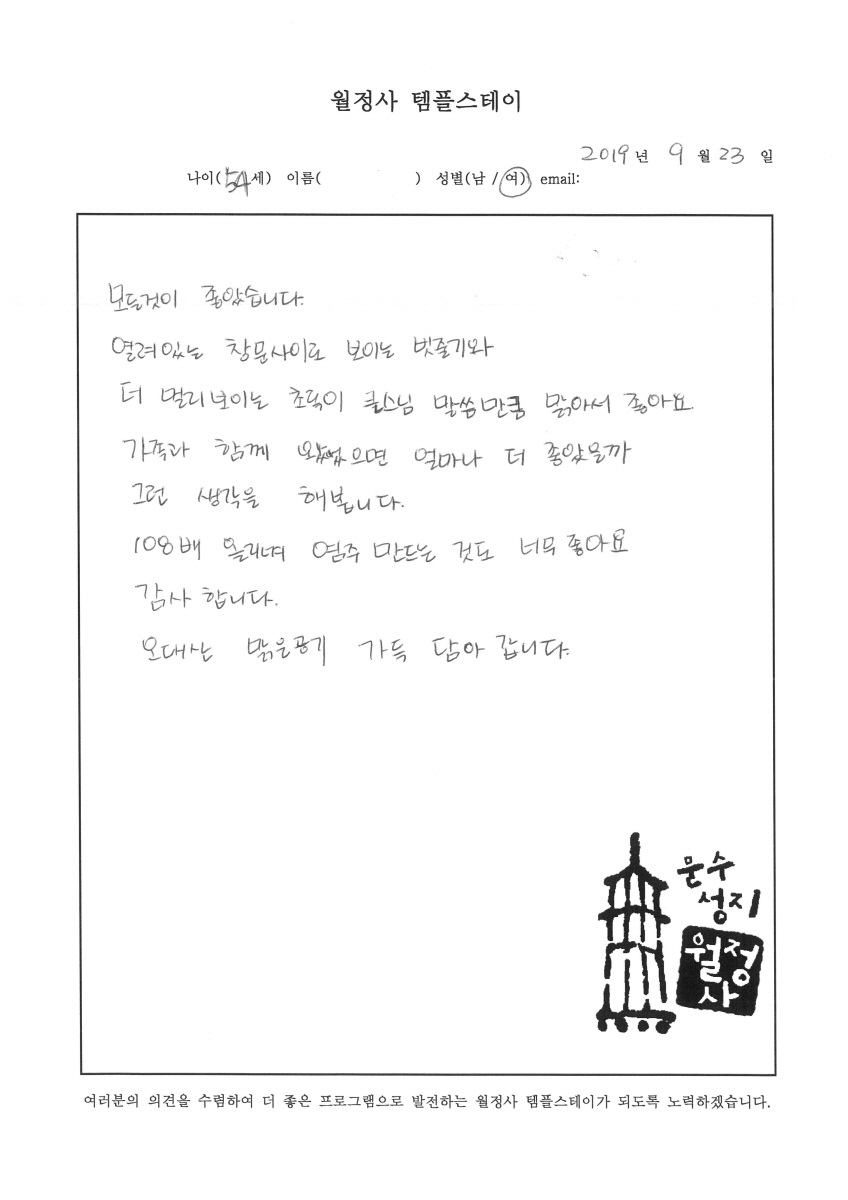 월정사 템플스테이
2019년 9월 23일
나이(54세) 이름( ) 성별(남 / 여) email:
모든것이 좋았습니다.
열려있는 창문사이로 보이는 빗줄기와
더 멀리보이는 초록이 큰스님 말씀만큼 맑아서 좋아요.
가족과 함께 왔었으면 얼마나 더 좋았을까
그런 생각을 해봅니다.
108배 올리며 염주 만드는 것도 너무 좋아요
감사 합니다.
오대산 맑은공기 가득 담아 갑니다.
문수
성지
월정
사
여러분의 의견을 수렴하여 더 좋은 프로그램으로 발전하는 월정사 템플스테이가 되도록 노력하겠습니다.